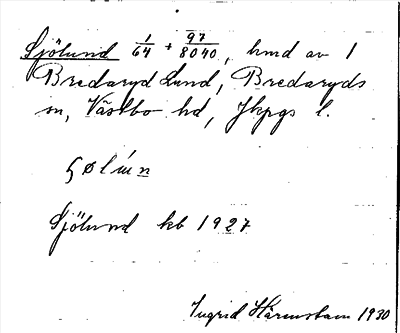 Sjölund 1/64 + 97/8040, hmd av 1
Bredaryd Lund, Bredaryds
sn, Västbo hd, Jkpgs l.
Sjölund kb 1927
Ingrid Härenstam 1930